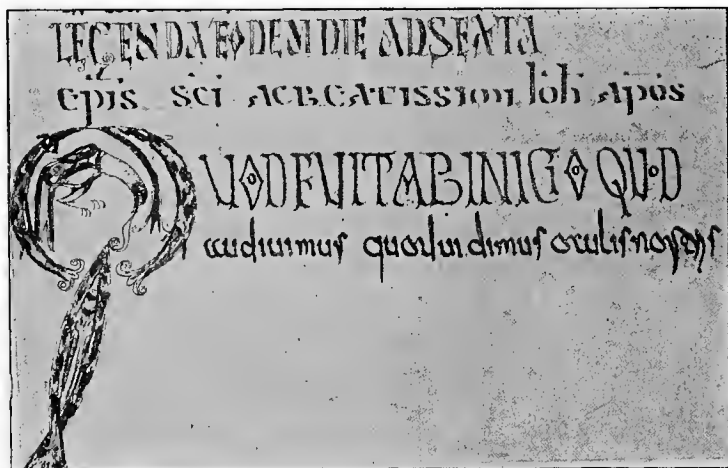 LEGENDA EODEM DIE ADSEXTA
epis sci ac beatissimi iohi apos
QUOD FUIT AB INICIO QUOD
audiuimus quod uidimus oculis nostris